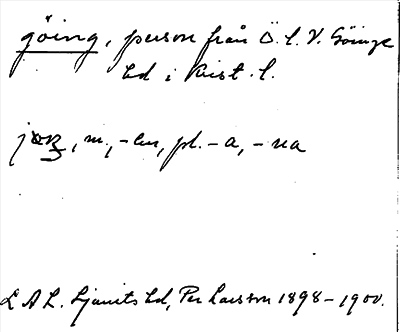 göing, person från Ö. o. V. Göinge
hd i Krist. l.
m., -en, pl. -a, -na
L A L. Ljunits hd, Per Larsson 1898-1900.